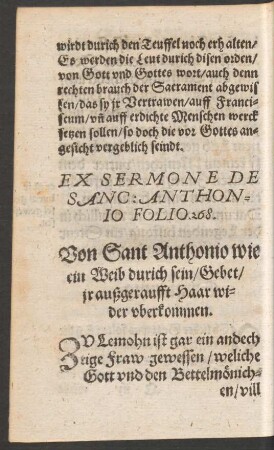 wirdt durich den Teuffel noch erhalten/
Es werden die Leut durch disen orden/
von Gott vnd Gottes wort/auch denn
rechten brauch der Sacrament abgewis
sen/das sy jr Vertrawen/auff Franci-
scum/vñ auff erdichte Menschen werck
setzen sollen/so doch die vor Gottes an-
gesicht vergeblich seindt.
EX SERMONE DE
SANC: ANTHON-
IO FOLIO.268.
Von Sant Anthonio wie
ein Weib durich sein/Gebet/
jr außgeraufft Haar wi-
der vberkommen.
ZV Lemohn ist gar ein andech
tige Fraw gewessen/weliche
Gott vnd den Bettelmönich-
en/vill